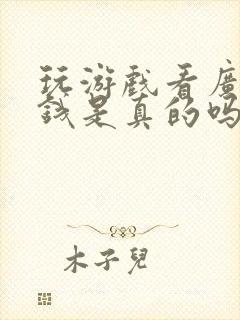 玩游戲看廣
錢是真的嗎
木子兒